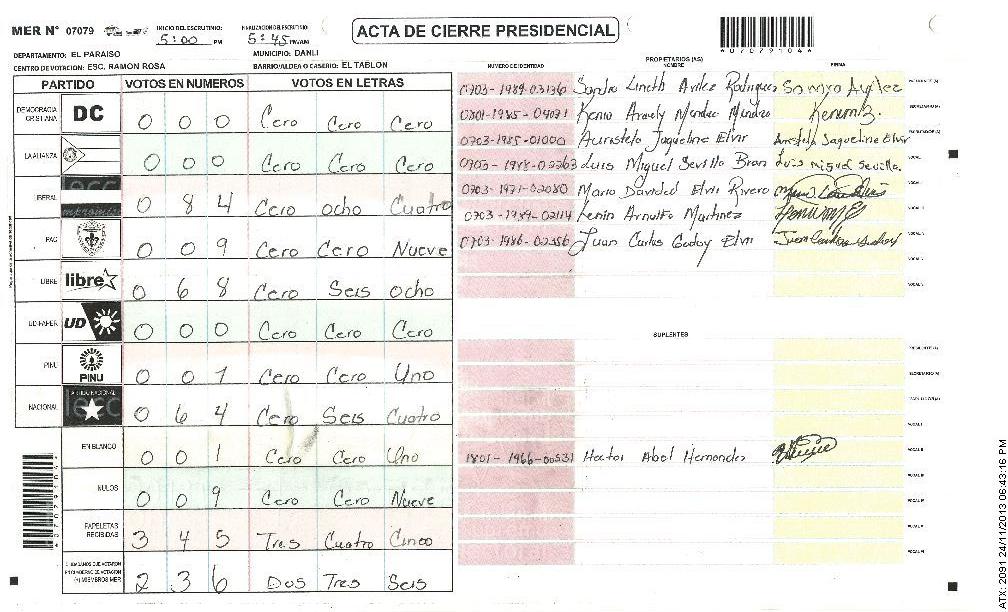 MER N° 07079 INICIO DEL ESCRUTINIO: 5:00 PM FINALIZACION DEL ESCRUTINIO: 5:45 PM/AM ACTA DE CIERRE PRESIDENCIAL
DEPARTAMENTO: EL PARAISO MUNICIPIO: DANLI
CENTRO DE VOTACION: ESC. RAMON ROSA BARRIO/ALDEA O CASERIO: EL TABLON
PARTIDO VOTOS EN NUMEROS VOTOS EN LETRAS
DEMOCRACIA CRISTIANA DC 0 0 0 Cero Cero Cero
LA ALIANZA 0 0 0 Cero Cero Cero
LIBERAL 0 8 4 Cero ocho Cuatro
PAC 0 0 9 Cero Cero Nueve
LIBRE libre 0 6 8 Cero Seis Ocho
UD-FAPER UD 0 0 0 Cero Cero Cero
PINU PINU 0 0 1 Cero Cero Uno
NACIONAL PARTIDO NACIONAL 0 6 4 Cero Seis Cuatro
EN BLANCO 0 0 1 Cero Cero Uno
NULOS 0 0 9 Cero Cero Nueve
PAPELETAS RECIBIDAS 3 4 5 Tres Cuatro Cinco
CIUDADANOS QUE VOTARON EN CUADERNO DE VOTACION (+) MIEMBROS MER 2 3 6 Dos Tres Seis
*07079104*
PROPIETARIOS (AS)
NUMERO DE IDENTIDAD NOMBRE FIRMA
0703-1989-03136 Sandra Lineth Avilez Rodriguez
0801-1985-04071 Kenia Arely Mendez Mendez
0703-1985-01000 Auristela Jaqueline Elvir
0703-1988-02263 Luis Miguel Sevilla Luis miguel Sevilla.
0703-1971-02080 Mario Elvir Rivera
0703-1989-02114 Lenin Arnulfo Martinez
0703-1986-02356 Juan Carlos Godoy Elvir
SUPLENTES
1801-1966-00531 Hector Abel Hernandez
ATX: 2091 24/11/2013 06:43:16 PM